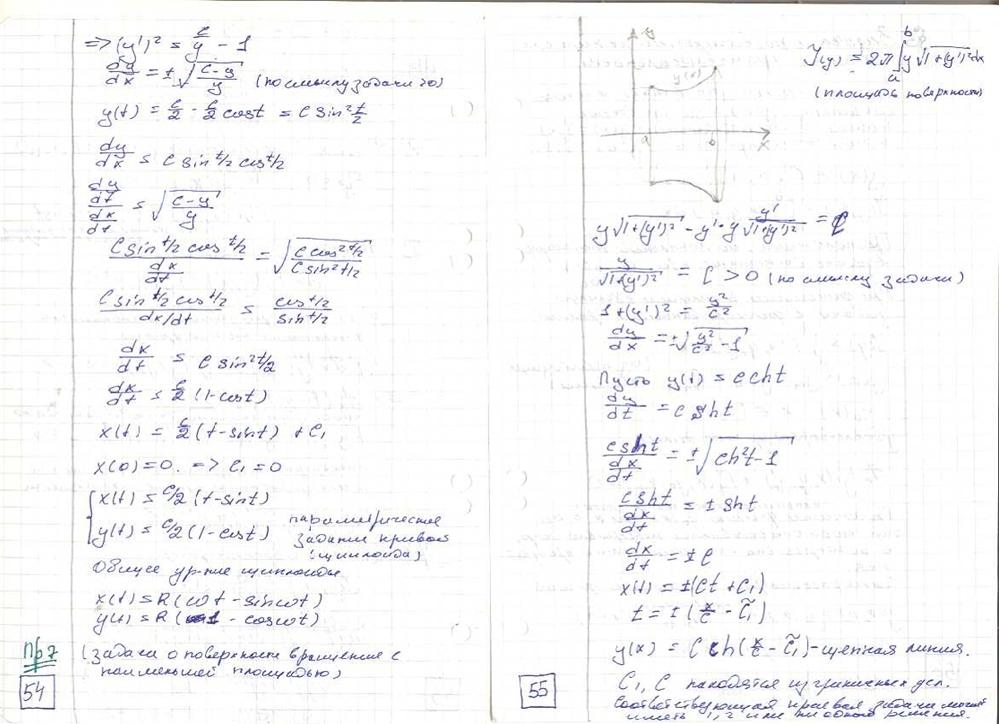 => (y')² = C/y - 1
dy/dx = ±√((C-y)/y) (по смыслу задачи >0)
y(t) = C/2 - C/2 cost = C sin² t/2
dy/dx = C sin t/2 cos t/2
(dy/dt)/(dx/dt) = √((C-y)/y)
(C sin t/2 cos t/2)/(dx/dt) = √((C cos² t/2)/(C sin² t/2))
(C sin t/2 cos t/2)/(dx/dt) = (cos t/2)/(sin t/2)
dx/dt = C sin² t/2
dx/dt = C/2 (1-cost)
x(t) = C/2 (t-sint) + C₁
x(0)=0. => C₁ = 0
{ x(t) = C/2 (t-sint)
y(t) = C/2 (1-cost) параметрическое
задание кривой
(циклоида)
Общее ур-ние циклоиды
x(t) = R(ωt - sinωt)
y(t) = R( 1 - cosωt)
Пр7 (Задача о поверхности вращения с
наименьшей площадью)
54
y
y(x)
a b x
J(y) = 2π ∫ₐᵇ y√(1+(y')²) dx
(площадь поверхности)
y√(1+(y')²) - y'·y y'/√(1+(y')²) = C
y/√(1+(y')²) = C > 0 (по смыслу задачи)
1+(y')² = y²/C²
dy/dx = ±√(y²/C² - 1)
Пусть y(t) = C ch t
dy/dt = C sh t
(C sh t)/(dx/dt) = ±√(ch²t - 1)
(C sh t)/(dx/dt) = ± sh t
dx/dt = ± C
x(t) = ±(Ct + C₁)
t = ±(x/C - C̃₁)
y(x) = C ch(x/C - C̃₁) - цепная линия.
C₁, C находятся из граничных усл.
Соответствующая краевая задача может
иметь 1, 2 или ни одного решения.
55